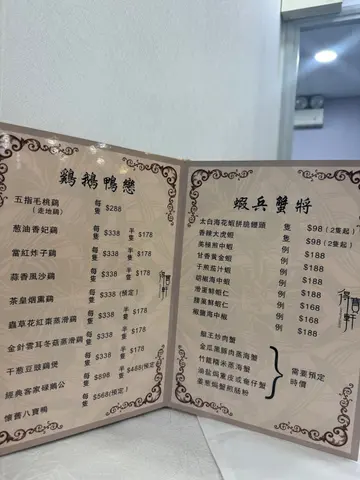 鷄鵝鴨戀
五指毛桃鷄 每隻 $288
(走地鷄)
葱油香妃鷄 每隻 $338 半隻 $178
當紅炸子鷄 每隻 $338 半隻 $178
蒜香風沙鷄 每隻 $338 半隻 $178
茶皇烟熏鷄 每隻 $338 (預定)
蟲草花紅棗蒸滑鷄 每隻 $338 半隻 $178
金針雲耳冬菇蒸滑鷄 每隻 $338 半隻 $178
干葱豆豉鷄煲 每隻 $338 半隻 $178
經典客家碌鵝公 每隻 $898 半隻 $468(預定)
懷舊八寶鴨 每隻 $568(預定)
蝦兵蟹將
太白海花蝦拼燒鰻頭 隻 $98 (2隻起)
香辣大虎蝦 隻 $98 (2隻起)
美極煎中蝦 例 $188
甘香黃金蝦 例 $188
干煎茄汁蝦 例 $188
胡椒海中蝦 例 $188
滑蛋鮮蝦仁 例 $168
腰菓鮮蝦仁 例 $168
椒鹽海中蝦 例 $188
椒王炒肉蟹
金瓜黑蒜肉蒸海蟹
竹籠糯米蒸海蟹
油鹽焗重皮或奄仔蟹
姜葱焗蟹煎腸粉
需要預定
時價